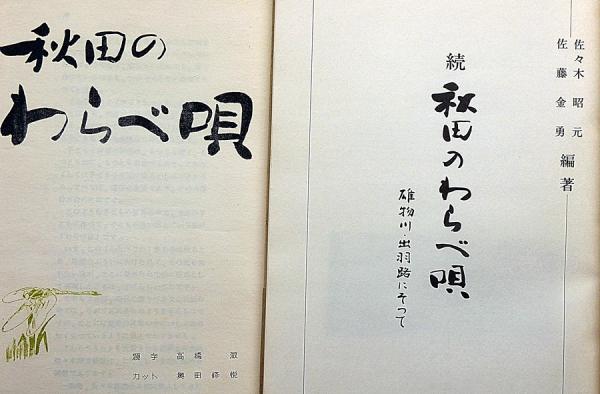 秋田の
わらべ唄
題字 高橋
カット 奥田
佐々木昭元
佐藤金勇
編著
続
秋田のわらべ唄
雄物川・出羽路にそって